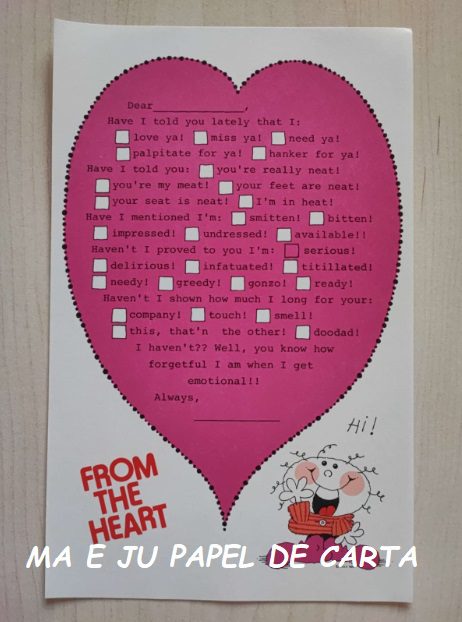 Dear______________,
Have I told you lately that I:
love ya! miss ya! need ya!
palpitate for ya! hanker for ya!
Have I told you: you're really neat!
you're my meat! your feet are neat!
your seat is neat! I'm in heat!
Have I mentioned I'm: smitten! bitten!
impressed! undressed! available!!
Haven't I proved to you I'm: serious!
delirious! infatuated! titillated!
needy! greedy! gonzo! ready!
Haven't I shown how much I long for your:
company! touch! smell!
this, that'n the other! doodad!
I haven't?? Well, you know how
forgetful I am when I get
emotional!!
Always,
______________
Hi!
FROM
THE
HEART
MA E JU PAPEL DE CARTA